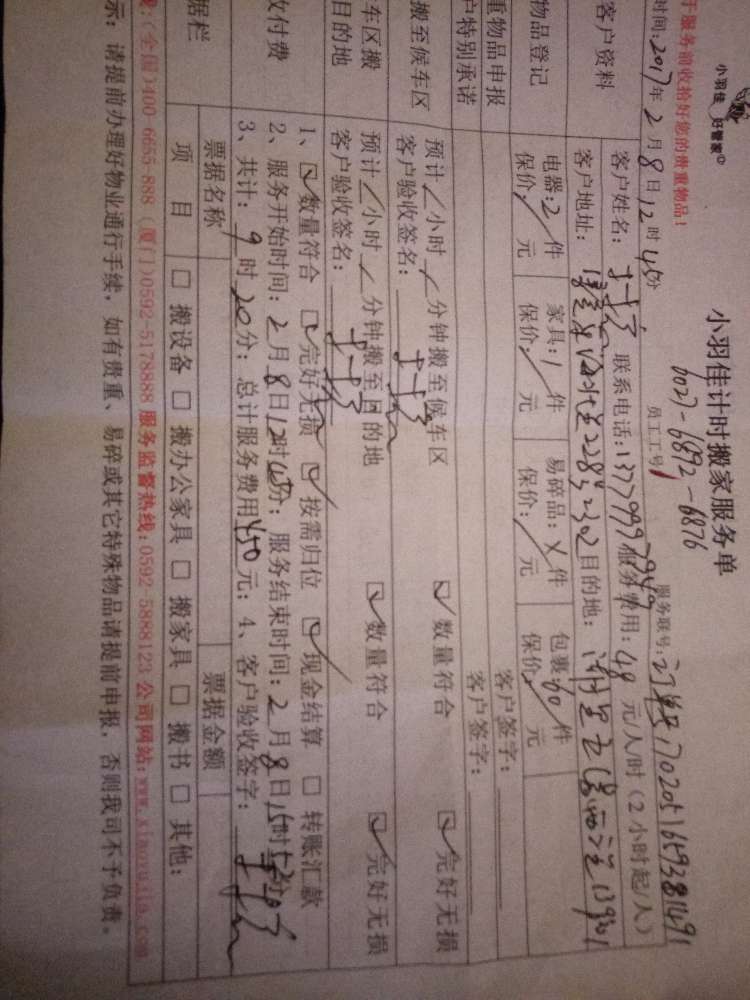 小羽佳 好管家
小羽佳计时搬家服务单
6027-6892-6876
于服务前收拾好您的贵重物品!
员工工号
服务联号: 订单号17020516593811491
时间: 2017年 2月 8日 12时 45分
客户资料
客户姓名: 联系电话: 服务费用: 48 元/人/时 (2小时起/人)
客户地址: 228号2302 目的地:
物品登记
电器: 2 件 家具: 1 件 易碎品: X 件 包裹: 60 件
保价: / 元 保价: / 元 保价: / 元 保价: / 元
重物品申报
客户签字:
户特别承诺
客户签字:
搬至候车区
预计 / 小时 / 分钟搬至候车区 ☑数量符合 ☑完好无损
客户验收签名:
车区搬
目的地
预计 / 小时 / 分钟搬至目的地 ☑数量符合 ☑完好无损
客户验收签名:
收付费
1、☑数量符合 ☑完好无损 ☑按需归位 ☑现金结算 □转账汇款
2、服务开始时间: 2月 8日 12时 45分; 服务结束时间: 2月 8日 15时 52分
3、共计: 9 时 20 分; 总计服务费用 450 元; 4、客户验收签字:
据栏
票据名称 票据金额
项 目 □搬设备 □搬办公家具 □搬家具 □搬书 □其他:
线: (全国)400-6655-888 (厦门)0592-5178888 服务监督热线: 0592-5888123 公司网站: www.xiaoyujia.com
示: 请提前办理好物业通行手续, 如有贵重、易碎或其它特殊物品请提前申报, 否则我司不予负责。